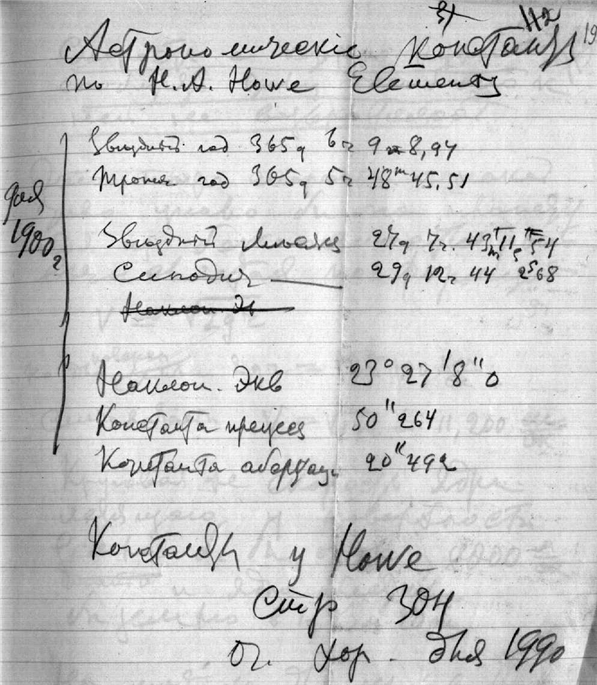 Астрономическіе Константы
по H.A. Howe Elements
Звездный год 365д 6ч 9м8,97
Тропич год 365д 5ч 48m45,51
для
1900г
Звездный Месяц 27д 7ч. 43m11,54
Синодич —— 29д 12ч 44 2s68
Наклон Эк
Наклон. Экв 23° 27' 8" 0
Константа прецесс 50"264
Константа аберрац. 20"492
Константы у Howe
Стр 304
оч. хор. для 1990